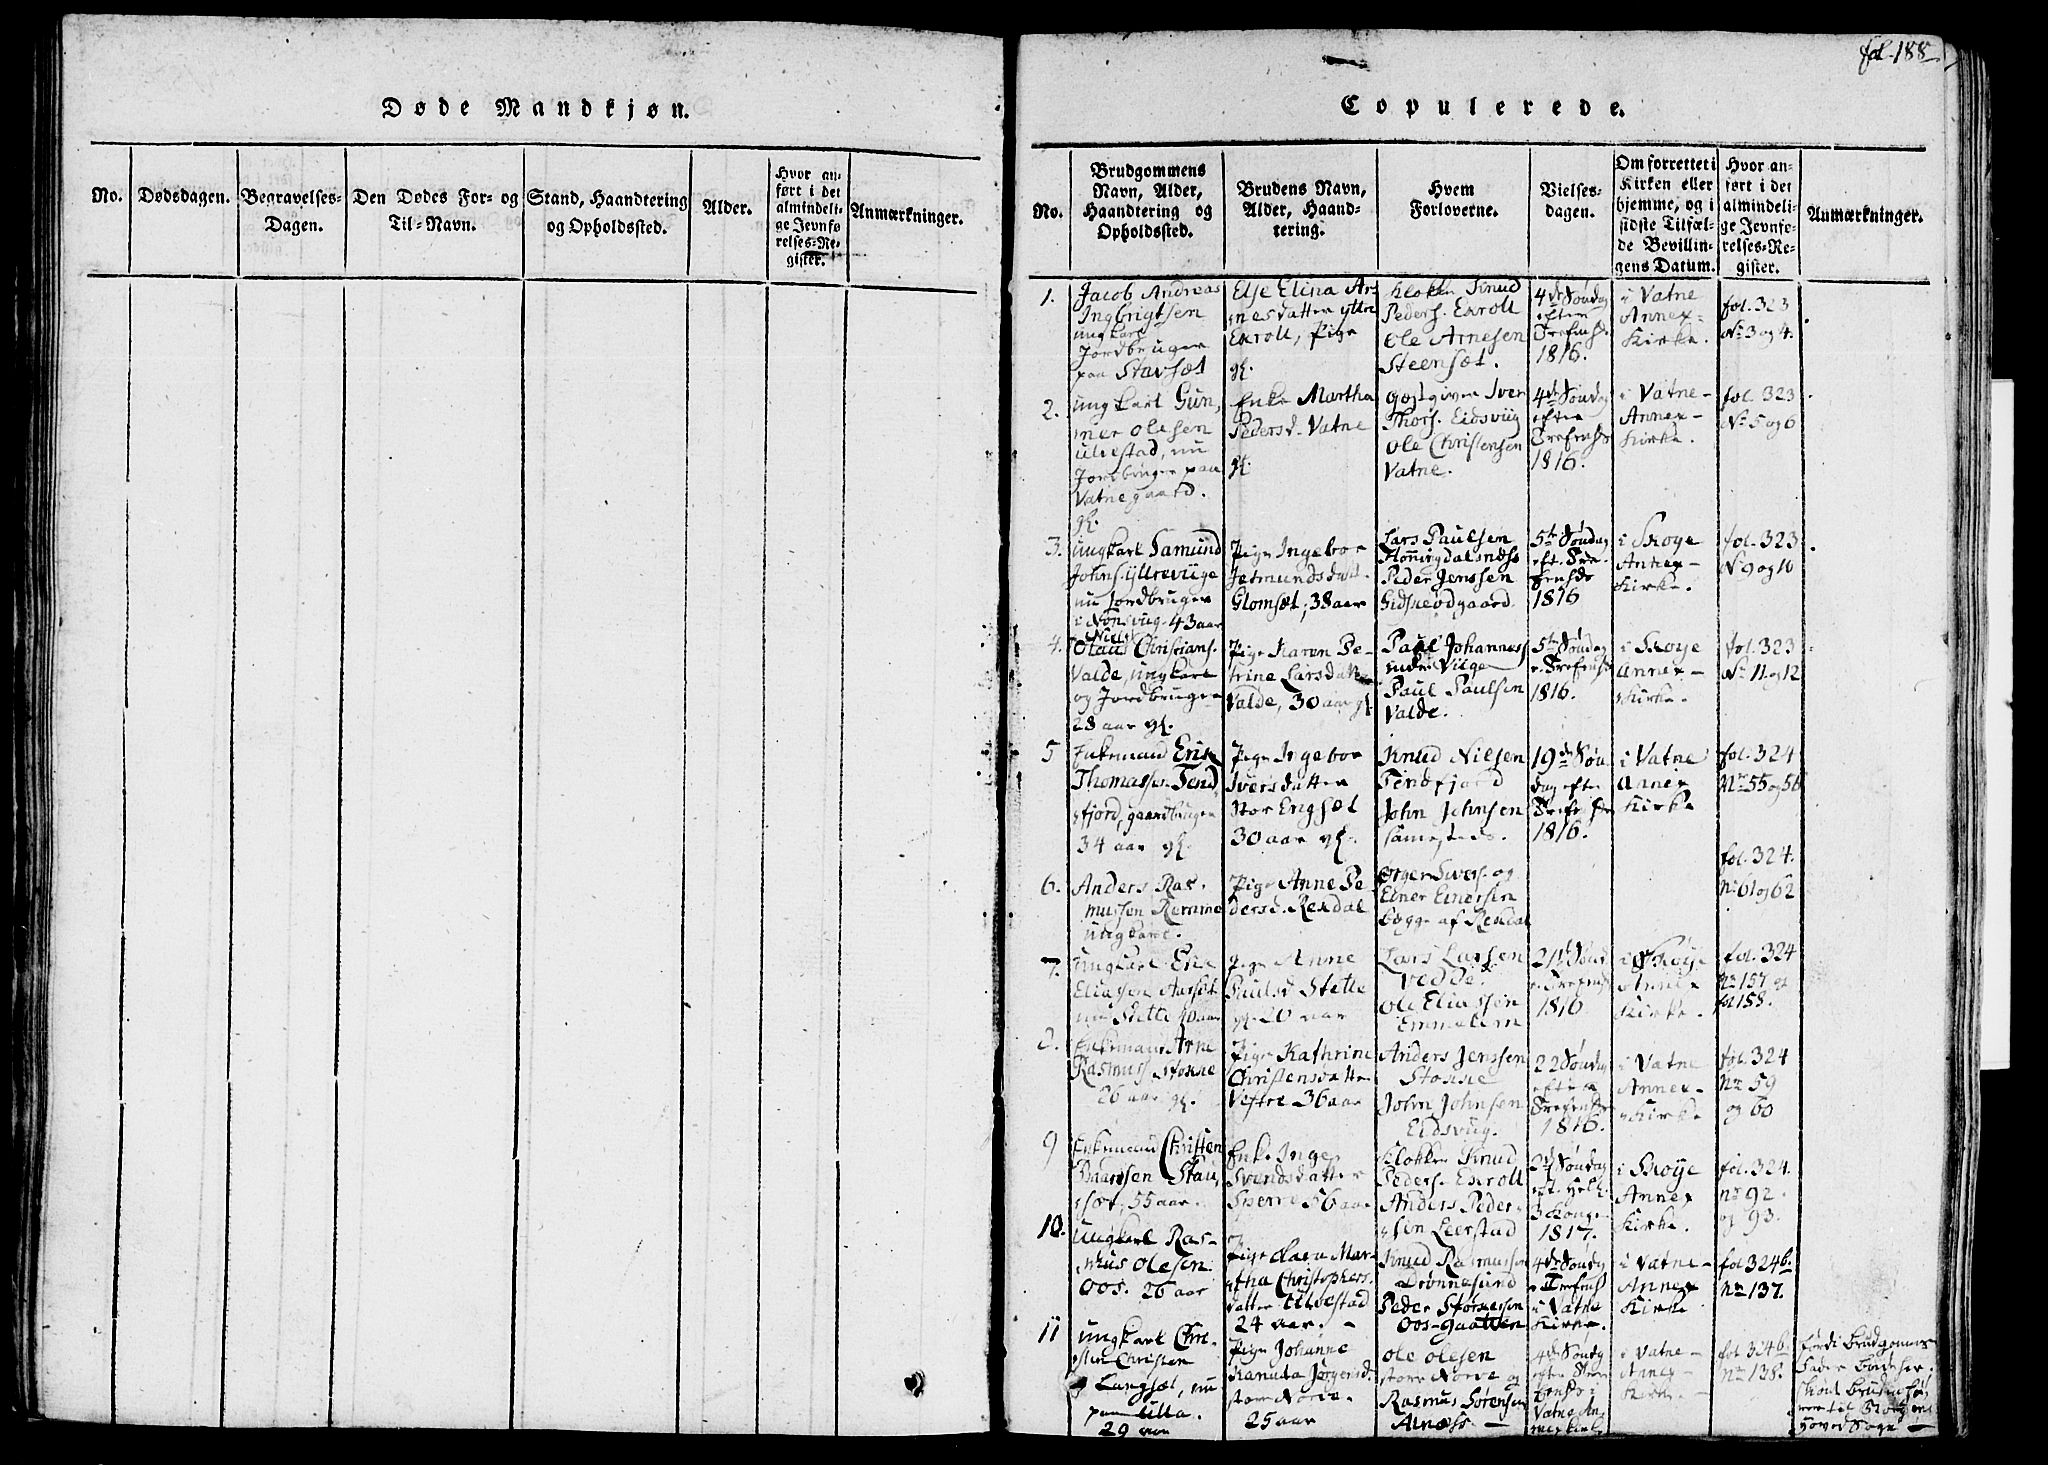 fol. 188
Døde Mandkjøn.
No.
Dødsdagen.
Begravelses-
Dagen.
Den Dødes For- og
Til-Navn.
Stand, Haandtering
og Opholdssted.
Alder.
Hvor an-
ført i det
almindeli-
ge Jevnfø-
relses-Re-
gister.
Anmærkninger.
Copulerede.
No.
Brudgommens
Navn, Alder,
Haandtering og
Opholdssted.
Brudens Navn,
Alder, Haand-
tering.
Hvem
Forloverne.
Vielses-
dagen.
Om forrettet i
Kirken eller
hjemme, og i
sidste Tilfæl-
de Bevillin-
gens Datum.
Hvor an-
ført i det
almindeli-
ge Jevnfø-
relses-Re-
gister.
Anmærkninger.
1.
Jacob Andreas
Ingbrigtsen
ungkarl
Jordbruger
paa Stavsæt
Else Elina Ar-
nesdatter yttre
Exroll, Pige
gl.
Klokker Knud
Peders. Exroll
Ole Arnesen
Steensæt.
4de Søndag
efter
Trefoldh.
1816.
i Vatne
Annex-
Kirke.
fol. 323
No 3 og 4.
2.
ungkarl Gun-
ner Olesen
Ulvestad, nu
Jordbruger paa
Vatnegaard.
gl.
Enke Martha
Pedersd. Vatne
gl.
Gæstgiver Iver
Thors. Eidsviig
Ole Christensen
Vatne.
4de Søndag
efter
1816.
i Vatne-
Annex-
Kirke.
fol. 323
No 5 og 6
3.
ungkarl Samund
Johns. yttreviige
nu Jordbruger
43 aar
Pige Ingebor
Jetmundsdatt.
Glomsæt, 38 aar
Lars Paulsen
Honnigdalsnæss
Peder Jenssen
Gidskeødgaard.
5te Søndag
1816
i Skoye
Annex-
Kirke.
fol. 323
No 9 og 10
4.
Niels
Olaus Christians.
Valde, ungkarl
og Jordbruger
28 aar gl.
Pige Karen Pe-
trine Larsdatt.
Valde, 30 aar gl.
Paul Johanness
indre Viige
Paul Paulsen
Valde.
5te Søndag
1816.
i Skoye
Annex-
Kirke.
fol. 323
No 11 og 12
5
Enkemand Erik
Thomassen Tend-
fjord, gaardbruger
34 aar gl.
Pige Ingebor
Iversdatter
Stor Engsæt
30 aar gl.
Knud Nilsen
Tendfjord
John Johnsen
sammesteds.
19de Søn-
dag efter
1816.
i Vatne
Annex
Kirke
fol. 324
No 55 og 56
6.
Anders Ras-
mussen Remme
ungkarl.
Pige Anne Pe-
dersd. Rexdal
Ørger Ivers. og
Einer Einersen
begge af Rexdal
fol. 324.
No 61 og 62
7.
ungkarl Erik
Eliassen Aarsæt
nu Stette 40 aar
Pige Anne
Paulsd Stette
gl. 20 aar
Lars Larsen
Vedde.
Ole Eliassen
Emmelem
21de Sønd.
1816
i Skoije
Annex
Kirke.
fol. 324
No 157 og
fol 158.
8.
Enkemand Arne
Rasmuss Stokke
26 aar gl.
Pige Kathrine
Christensdatter
Vestre 36 aar
Anders Jenssen
Stokke
John Johnsen
Eidsviig.
22 Søndag
efter
1816.
i Vatne
Annex-
Kirke
fol. 324
No 59
og 60
9
Enkemand Christen
Baarsen Stau-
sæt, 55 aar.
Enke Inge
Svendsdatter
Sperre 56 aar
Klokker Knud
Peders. Exroll
Anders Peder-
sen Leerstad
2de Søndag
eft. Hell.
3 Konger
1817.
i Skoije
Annex
Kirke.
fol. 324.
no 92.
og 93.
10.
ungkarl Ras-
mus Olesen
Oos. 26 aar
Pige Karen Mar-
tha Christophers-
datter Ulvestad
24 aar. -
Knud Rasmussen
Drønnesund
Peder
Oos-gaatten
4de Søndag
i Vatne
Kirke.
i Vatne-
Annex
Kirke
fol 324b.
No 137.
11
ungkarl Chri-
sten Christen
Langsæt, nu
paa Ulla.
29 aar
Pige Johanne
Kanuta Jørgensd.
store Norve.
25 aar
Ole Olesen
store Norve og
Rasmus Sørensen
Alnæss. -
4de Søndag
efter
i
Vatne An-
nexkirke
i Vatne-
Annex-
Kirke. -
fol 324b.
no 138.
fordi Brudgommens
Fader boede her.
til
Hoved Sogn -